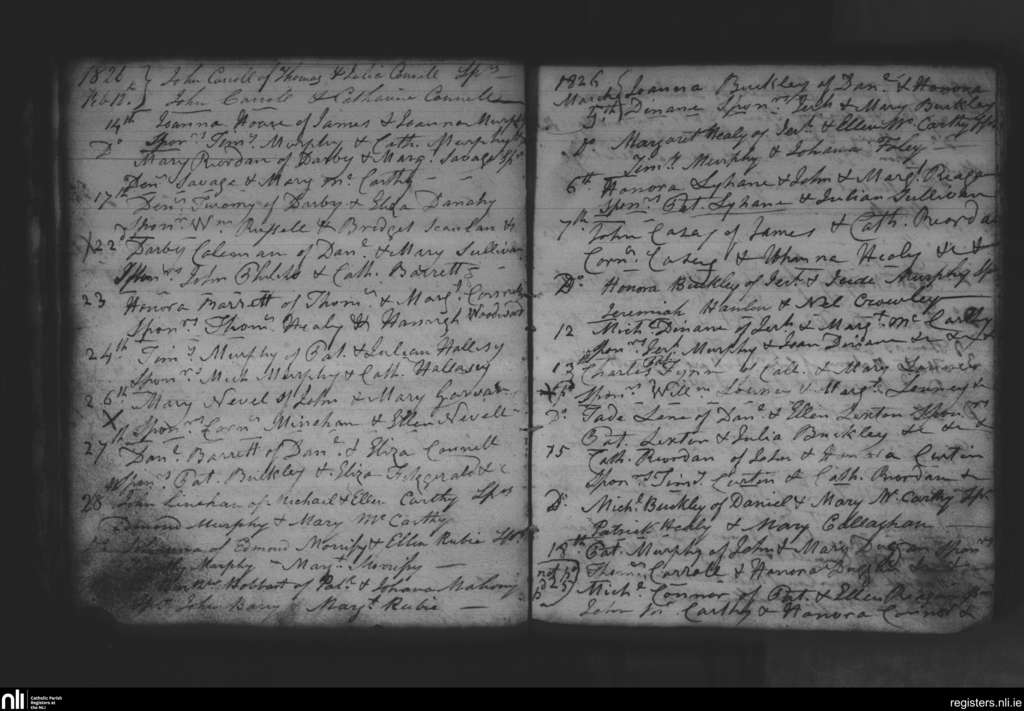 1826 } John Carroll of Thomas & Julia Connell Sprs
Feb 12th. } John Carroll & Catharine Connell
14th Joanna Hore of James & Joanna Murphy
Sponrs Timy. Murphy & Cath. Murphy
Do Mary Riordan of Darby & Marg. Savage Sprs
Denis. Savage & Mary Mc. Carthy
17th Denis. Twomy of Darby & Eliza Danahy
Sponrs Wm Russell & Bridget Scanlan &
X 22d Darby Coleman of Danl. & Mary Sullivan
Sponrs John Childs & Cath. Barrett
23 Honora Barrett of Thoms & Margt. Connell
Sponrs. Thoms. Healy & Hanagh Woodward
24th Timy. Murphy of Pat. & Julian Hallisy
Sponrs Mich Murphy & Cath. Hallasy
26th Mary Nevel of John & Mary
X Sponrs Corns Minehan & Ellen Nevell
27th Danl. Barrett of Danl. & Eliza Connell
Sponrs Pat. Buckley & Eliza Fitzgerald &c
28 John Linehan of Michael & Ellen Carthy Sprs
Edmond Murphy & Mary McCarthy
of Edmond Morrisy & Ellen Rubie Sprs
Murphy Margt. Morrisy
Hobbart of Patk. & Johana Mahony
John Barry & Margt. Rubie
1826 Joanna Buckley of Danl. & Honora
March 5th Dinane Sponrs Jerh & Mary Buckley
Do Margaret Healy of Jerh. & Ellen Mc. Carthy Sprs
Timy. Murphy & Johana Foley
6th Honora Lyhane of John & Margt. Reagan
Sponrs Pat. Lyhane & Julian Sullivan
7th. John Casey of James & Cath. Riordan
Corns. Casey & Healy &c &
Do Honora Buckley of Jerh. & Jude Murphy Sprs
Jeremiah Hanlon & Nel Crowley
12 Michl. Dinane of Jerh & Margt. Mc Carthy
Sponrs Jerh. Murphy & Joan Dinane &c &
13 Charles Flynn of Cath. & Mary
X Sponrs Willm & Margt. &
Do Tade Lane of Danl. & Ellen Linton Sponrs
Pat. Linton & Julia Buckley &c &c &
15 Cath. Riordan of John & Curtin
Sponrs Timy. Curtin & Cath. Riordan &
Do. Michl. Buckley of Daniel & Mary Mc. Carthy Sprs
Patrick Healy & Mary Callaghan
18th Pat. Murphy of John & Mary Duggan Sponrs
Thoms. Carroll & Honora
Michl. Connor of Pat. & Ellen
John Mc. Carthy & Honora Connor &
nli
Catholic Parish
Registers at
the NLI
registers.nli.ie